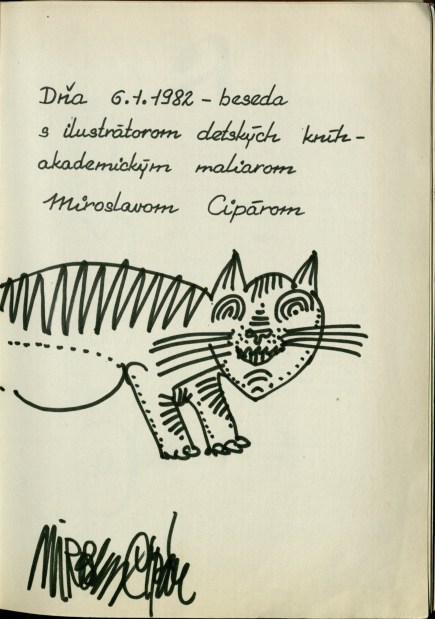 Dňa 6.1.1982 - beseda
s ilustrátorom detských kníh -
akademickým maliarom
Miroslavom Cipárom